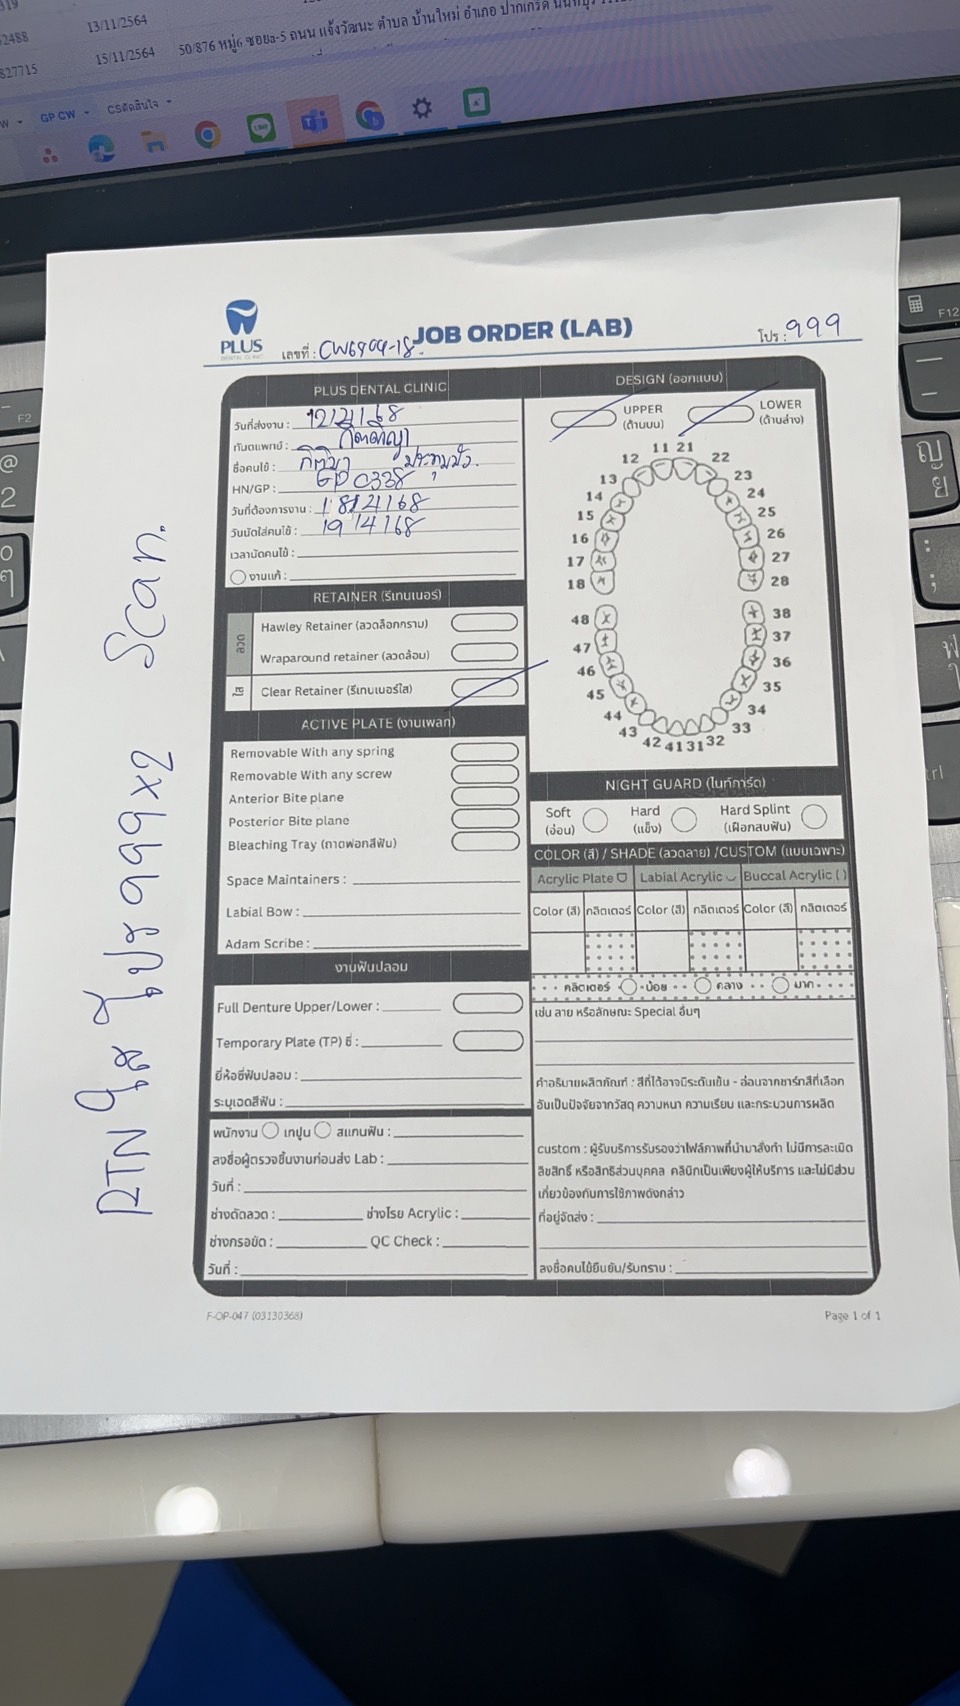 319
2488
13/11/2564
827715
15/11/2564
50/876 หมู่6 ซอยa-5 ถนน แจ้งวัฒนะ ตำบล บ้านใหม่ อำเภอ ปากเกร็ด
GP CW
CSตัดสินใจ
F2
F12
@
2
PLUS
DENTAL CLINIC
เลขที่ : CW6804-18
JOB ORDER (LAB)
โปร : 999
PLUS DENTAL CLINIC
วันที่ส่งงาน : 12/4/68
ทันตแพทย์ :
ชื่อคนไข้ :
HN/GP : GP 0338
วันที่ต้องการงาน : 18/4/68
วันนัดใส่คนไข้ : 19/4/68
เวลานัดคนไข้ :
งานแก้ :
RETAINER (รีเทนเนอร์)
ลวด
Hawley Retainer (ลวดล็อกกราม)
Wraparound retainer (ลวดล้อม)
ใส
Clear Retainer (รีเทนเนอร์ใส)
ACTIVE PLATE (งานเพลท)
Removable With any spring
Removable With any screw
Anterior Bite plane
Posterior Bite plane
Bleaching Tray (ถาดฟอกสีฟัน)
Space Maintainers :
Labial Bow :
Adam Scribe :
งานฟันปลอม
Full Denture Upper/Lower :
Temporary Plate (TP) ซี่ :
ยี่ห้อซี่ฟันปลอม :
ระบุเฉดสีฟัน :
พนักงาน เทปูน สแกนฟัน :
ลงชื่อผู้ตรวจชิ้นงานก่อนส่ง Lab :
วันที่ :
ช่างดัดลวด : ช่างโรย Acrylic :
ช่างกรอขัด : QC Check :
วันที่ :
DESIGN (ออกแบบ)
UPPER
(ด้านบน)
LOWER
(ด้านล่าง)
11 21
12 22
13 23
14 24
15 25
16 26
17 27
18 28
48 38
47 37
46 36
45 35
44 34
43 33
42 41 31 32
NIGHT GUARD (ไนท์การ์ด)
Soft
(อ่อน)
Hard
(แข็ง)
Hard Splint
(เฝือกสบฟัน)
COLOR (สี) / SHADE (ลวดลาย) /CUSTOM (แบบเฉพาะ)
Acrylic Plate Labial Acrylic Buccal Acrylic ( )
Color (สี) กลิตเตอร์ Color (สี) กลิตเตอร์ Color (สี) กลิตเตอร์
กลิตเตอร์ น้อย กลาง มาก
เช่น ลาย หรือลักษณะ Special อื่นๆ
คำอธิบายผลิตภัณฑ์ : สีที่ได้อาจมีระดับเข้ม - อ่อนจากชาร์ทสีที่เลือก
อันเป็นปัจจัยจากวัสดุ ความหนา ความเรียบ และกระบวนการผลิต
custom : ผู้รับบริการรับรองว่าไฟล์ภาพที่นำมาสั่งทำ ไม่มีการละเมิด
ลิขสิทธิ์ หรือสิทธิส่วนบุคคล คลินิกเป็นเพียงผู้ให้บริการ และไม่มีส่วน
เกี่ยวข้องกับการใช้ภาพดังกล่าว
ที่อยู่จัดส่ง :
ลงชื่อคนไข้ยืนยัน/รับทราบ :
F-OP-047 (03130368)
Page 1 of 1
RTN ใส โปร 999 x2 Scan.